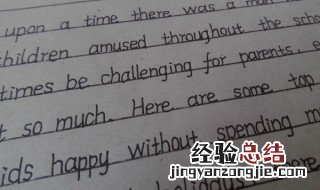 upon a time there was a man
children amused throughout the scho
times be challenging for parents, e
t so much. Here are some top
ids happy without spending m
经验总结
www.jyzj.com